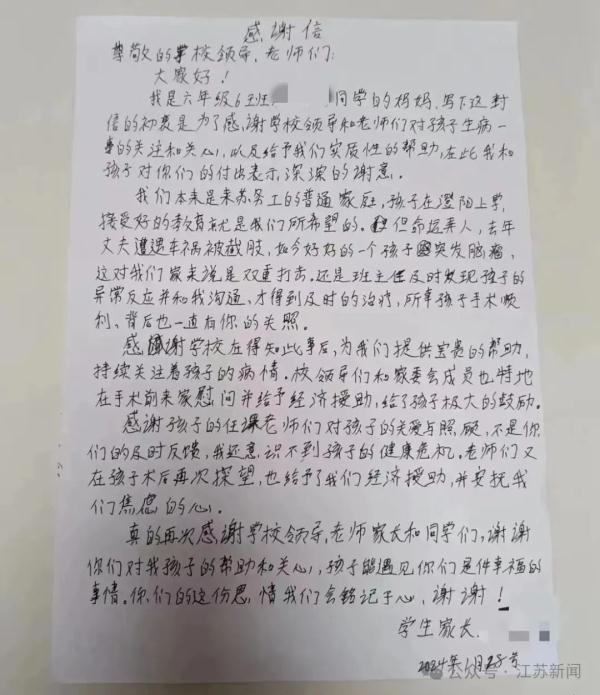 感谢信
尊敬的学校领导、老师们:
大家好!
我是六年级6班 同学的妈妈,写下这封
信的初衷是为了感谢学校领导和老师们对孩子生病一
事的关注和关心,以及给予我们实质性的帮助,在此我和
孩子对你们的付出表示深深的谢意。
我们本来是来苏务工的普通家庭,孩子在澄阳上学,
接受好的教育就是我们所希望的。但命运弄人,去年
丈夫遭遇车祸被截肢,如今好好的一个孩子突发脑瘤,
这对我们家来说是双重打击。还是班主任及时发现孩子的
异常反应并和我沟通,才得到及时的治疗,所幸孩子手术顺
利、背后也一直有你的关照。
感谢学校在得知此事后,为我们提供宝贵的帮助,
持续关注着孩子的病情。校领导们和家委会成员也特地
在手术前来家慰问并给予经济援助,给了孩子极大的鼓励。
感谢孩子的任课老师们对孩子的关爱与照顾,不是你
们的及时反馈,我还意识不到孩子的健康危机。老师们又
在孩子术后再次探望,也给予了我们经济援助,并安抚我
们焦虑的心。
真的再次感谢学校领导,老师家长和同学们,谢谢
你们对我孩子的帮助和关心,孩子能遇见你们是件幸福的
事情。你们的这份恩情我们会铭记于心,谢谢!
学生家长、
2024年1月28号
公众号·江苏新闻